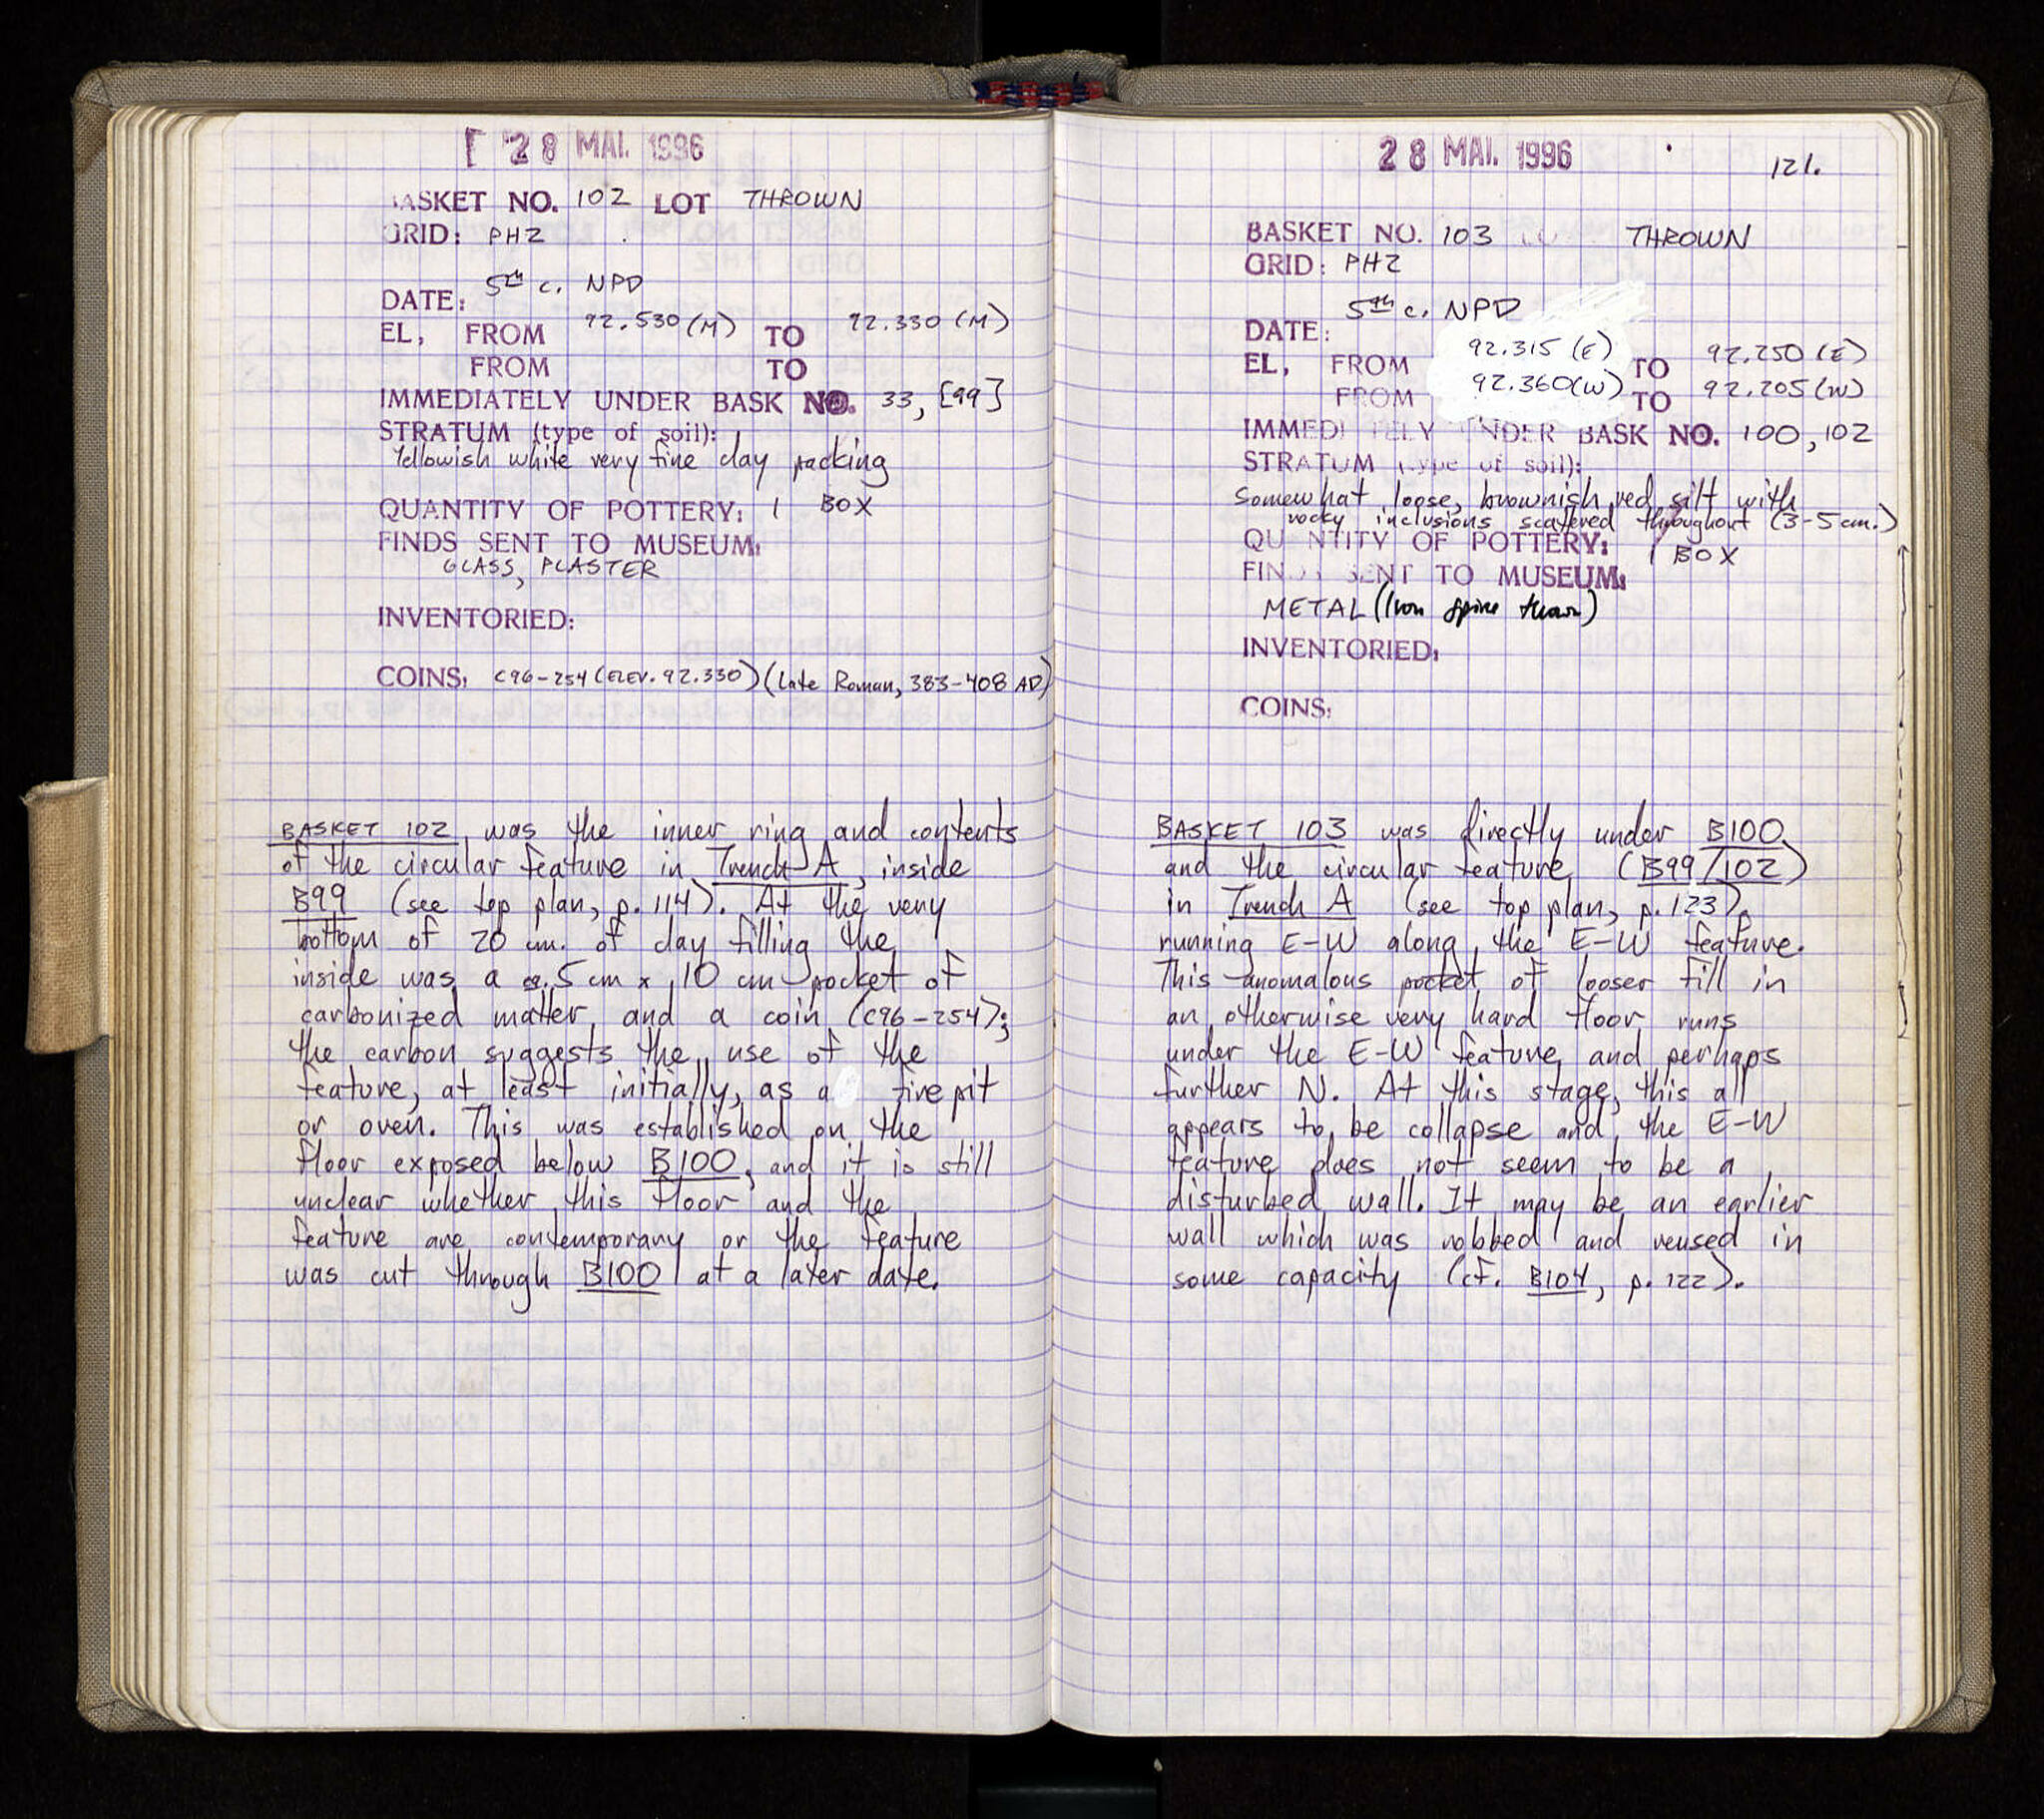 28 MAI. 1996
BASKET NO. 102 LOT THROWN
GRID: PHZ
5th c. NPD
DATE:
EL, FROM 92.530 (M) TO 92.330 (M)
FROM TO
IMMEDIATELY UNDER BASK NO. 33, [99]
STRATUM (type of soil):
Yellowish white very fine clay packing
QUANTITY OF POTTERY: 1 BOX
FINDS SENT TO MUSEUM:
GLASS, PLASTER
INVENTORIED:
COINS: C96-254 (ELEV. 92.330) (Late Roman, 383-408 AD)
BASKET 102 was the inner ring and contents
of the circular feature in Trench A, inside
B99 (see top plan, p. 114). At the very
bottom of 20 cm. of clay filling the
inside was a ca. 5 cm x 10 cm pocket of
carbonized matter and a coin (C96-254);
the carbon suggests the use of the
feature, at least initially, as a firepit
or oven. This was established on the
floor exposed below B100, and it is still
unclear whether this floor and the
feature are contemporary or the feature
was cut through B100 at a later date.
28 MAI. 1996
121.
BASKET NO. 103 LOT THROWN
GRID: PHZ
5th c. NPD
DATE:
EL, FROM 92.315 (E) TO 92.250 (E)
FROM 92.360 (W) TO 92.205 (W)
IMMEDIATELY UNDER BASK NO. 100, 102
STRATUM (type of soil):
Somewhat loose, brownish red silt with
rocky inclusions scattered throughout (3-5 cm.)
QUANTITY OF POTTERY: 1 BOX
FINDS SENT TO MUSEUM:
METAL (Iron
INVENTORIED:
COINS:
BASKET 103 was directly under B100
and the circular feature (B99/102)
in Trench A (see top plan, p. 123),
running E-W along the E-W feature.
This anomalous pocket of looser fill in
an otherwise very hard floor runs
under the E-W feature and perhaps
further N. At this stage, this all
appears to be collapse and the E-W
feature does not seem to be a
disturbed wall. It may be an earlier
wall which was robbed and reused in
some capacity (cf. B104, p. 122).